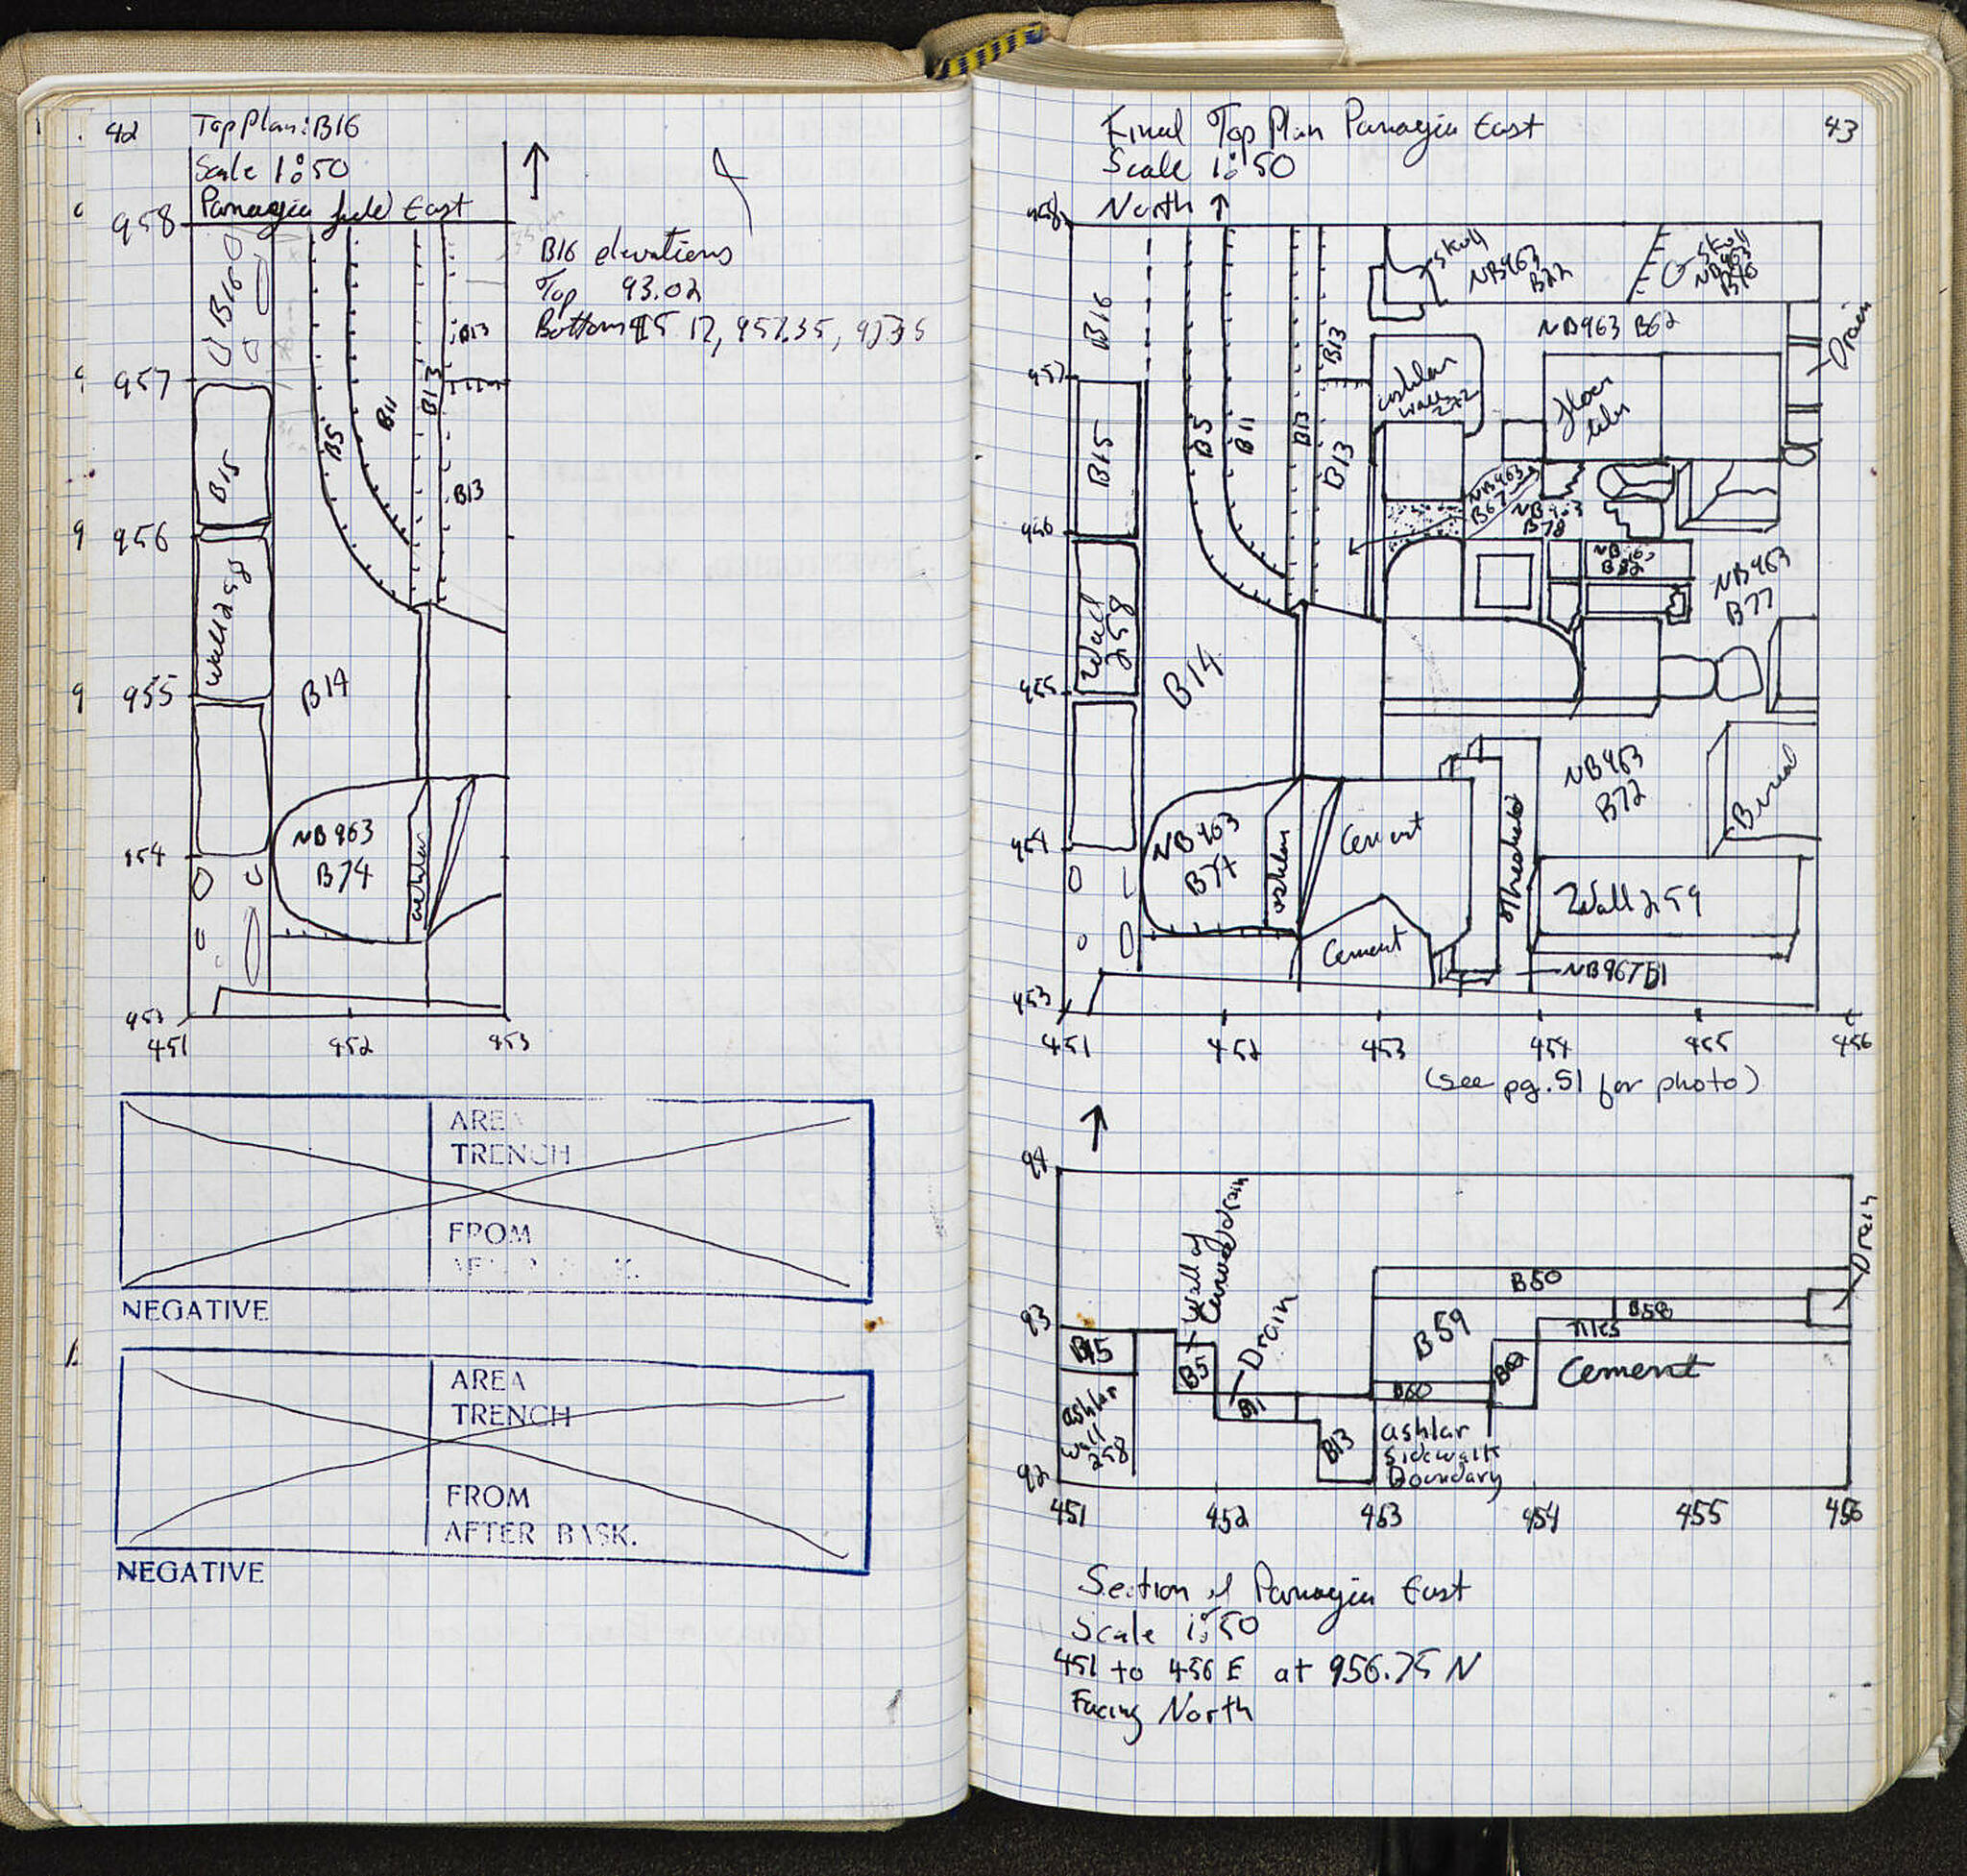 42
Top Plan: B16
Scale 1:50
Panagia field East
958
957
956
955
954
953
451
952
453
B16
B15
Wall 258
B5
B11
B13
B13
B13
B14
NB963
B74
ashlar
B16 elevations
Top 93.02
AREA
TRENCH
FROM
NEGATIVE
AREA
TRENCH
FROM
AFTER BASK.
NEGATIVE
43
Final Top Plan Panagia East
Scale 1:50
North
958
957
956
955
954
953
451
452
453
454
455
456
B16
B15
Wall
258
B5
B11
B13
B13
B13
B14
skull
NB963
B22
skull
NB963
NB963 B62
Drain
ashlar
wall 272
floor
tiles
NB963
B67
NB963
B78
NB963
NB963
B77
NB963
B72
Burial
NB963
B74
ashlar
Cement
Cement
Threshold
Wall 259
NB967 B1
(see pg. 51 for photo)
94
93
92
Wall of
Curved drain
Drain
Drain
B50
B58
B59
Tiles
B15
B5
B62
Cement
B60
B11
ashlar
wall
258
B13
ashlar
sidewalk
Boundary
451
452
453
454
455
456
Section of Panagia East
Scale 1:50
451 to 456 E at 956.75 N
Facing North